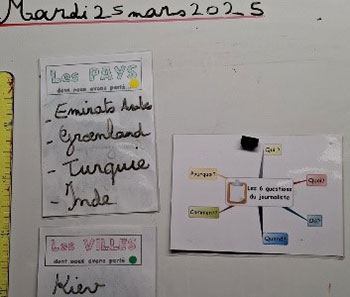 Mardi 25 mars 2025
Les PAYS
dont nous avons parlé
- Emirats Arabes
- Groenland
- Turquie
- Inde
Les VILLES
dont nous avons parlé
Kiev
Qui ?
Pourquoi ?
Quoi ?
Les 6 questions
du journaliste
Comment ?
Où ?
Quand ?